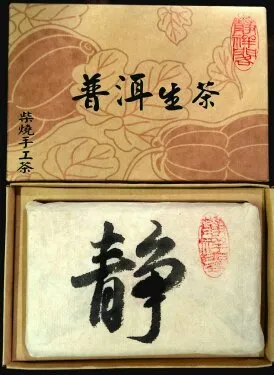 普洱生茶
柴燒手工茶
静